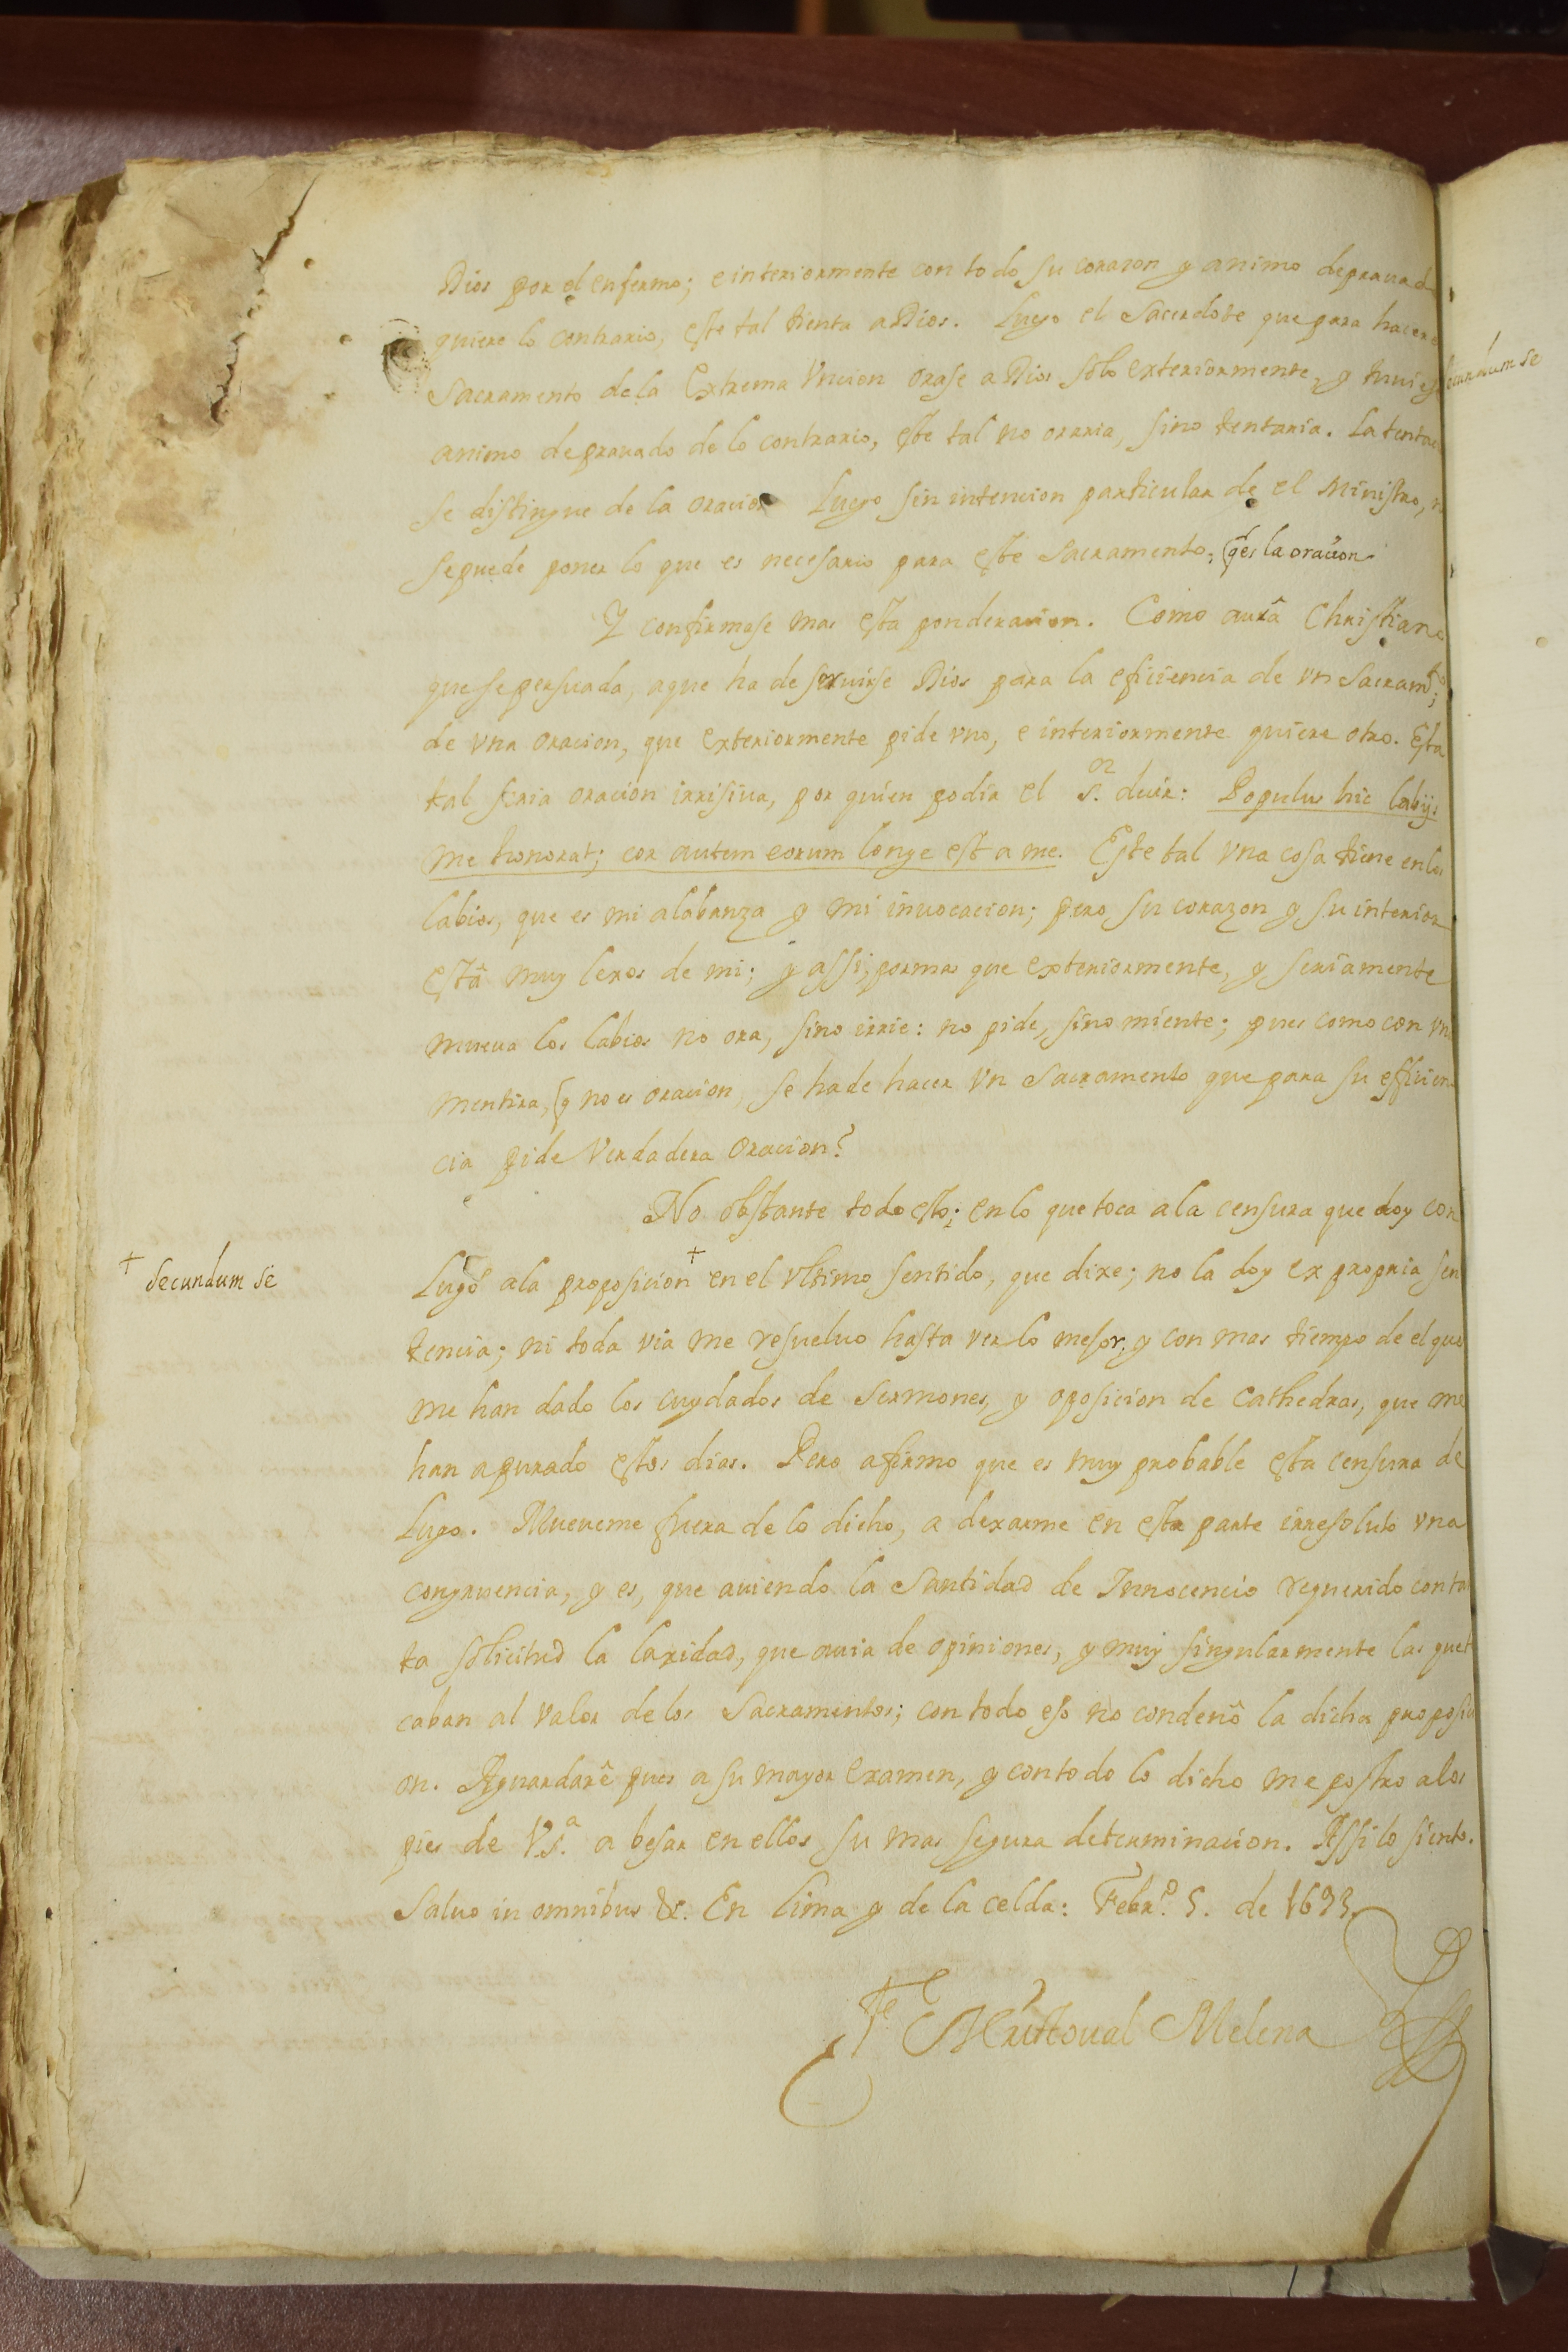 Dios por el enfermo; e interiormente con todo su corazon y animo deprauad
quiere lo contrario, este tal tienta a Dios. Luego el Sacerdote que para hacer
Sacramento de la Extrema Vncion orase a Dios solo exteriormente, y tuuies
animo deprauado de lo contrario, este tal no oraria, sino tentaria. La tenta
se distingue de la oracion Luego sin intencion particular de el Ministro, n
se puede poner lo que es necesario para este Sacramento, q es la oracion
Y confirmase mas esta ponderacion. Como aurâ Christiano
que se persuada, a que ha de seruirse Dios para la eficiencia de vn Sacramto;
de vna oracion, que exteriormente pide vno, e interiormente quiere otro. Esta
tal seria oracion irrisiua, por quien podia el S.or decir: Populus hic labijs
me honorat; cor autem eorum longe est a me. Este tal vna cosa tiene en los
labios, que es mi alabanza y mi inuocacion; pero su corazon y su interior
està muy lexos de mi; y assi, por mas que exteriormente, y seriamente
mueua los labios no ora, sino irrie: no pide, sino miente; pues como con vn
mentira, q no es oracion, se ha de hacer vn Sacramento que para su eficien
cia pide verdadera oracion?
No obstante todo esto; en lo que toca a la censura que doy con
+ secundum se
Lugo a la proposicion + en el vltimo sentido, que dixe; no la doy ex propria sen
tencia; ni toda via me resueluo hasta verlo mejor, y con mas tiempo de el que
me han dado los cuydados de sermones, y oposicion de Cathedras, que me
han apurado estos dias. Pero afirmo que es muy probable esta censura de
Lugo. Mueueme fuera de lo dicho, a dexarme en esta parte irresoluto vna
congruencia, y es, que auiendo la Santidad de Innocencio requerido con ta
ta solicitud la laxidad, que auia de opiniones, y muy singularmente las que t
caban al valor de los Sacramentos; con todo eso no condenô la dicha proposici
on. Aguardarê pues a su mayor examen, y con todo lo dicho me postro a los
pies de V.S.a a besar en ellos su mas segura determinacion. Assi lo siento.
Saluo in omnibus &c. En Lima y de la celda: Febr.o 5. de 1693
Fr Christoual Melena
secundum se